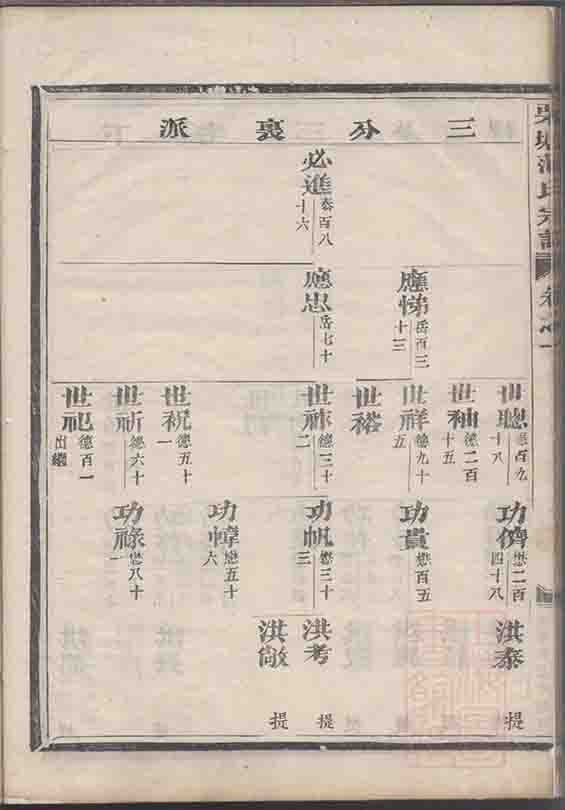 三分裏派
必進 泰百八十六
應悌 岳百三十三
應忠 岳七十
世聰 德百九十八
世䄂 德二百十五
世祥 德九十五
世裕
世祿 德三十二
世祝 德五十一
世祈 德六十
世祀 德百一 出繼
功儕 懋二百四十八
功貴 懋百五
功帆 懋三十三
功幛 懋五十六
功祿 懋八十一
洪泰 提
洪考 提
洪敞 提